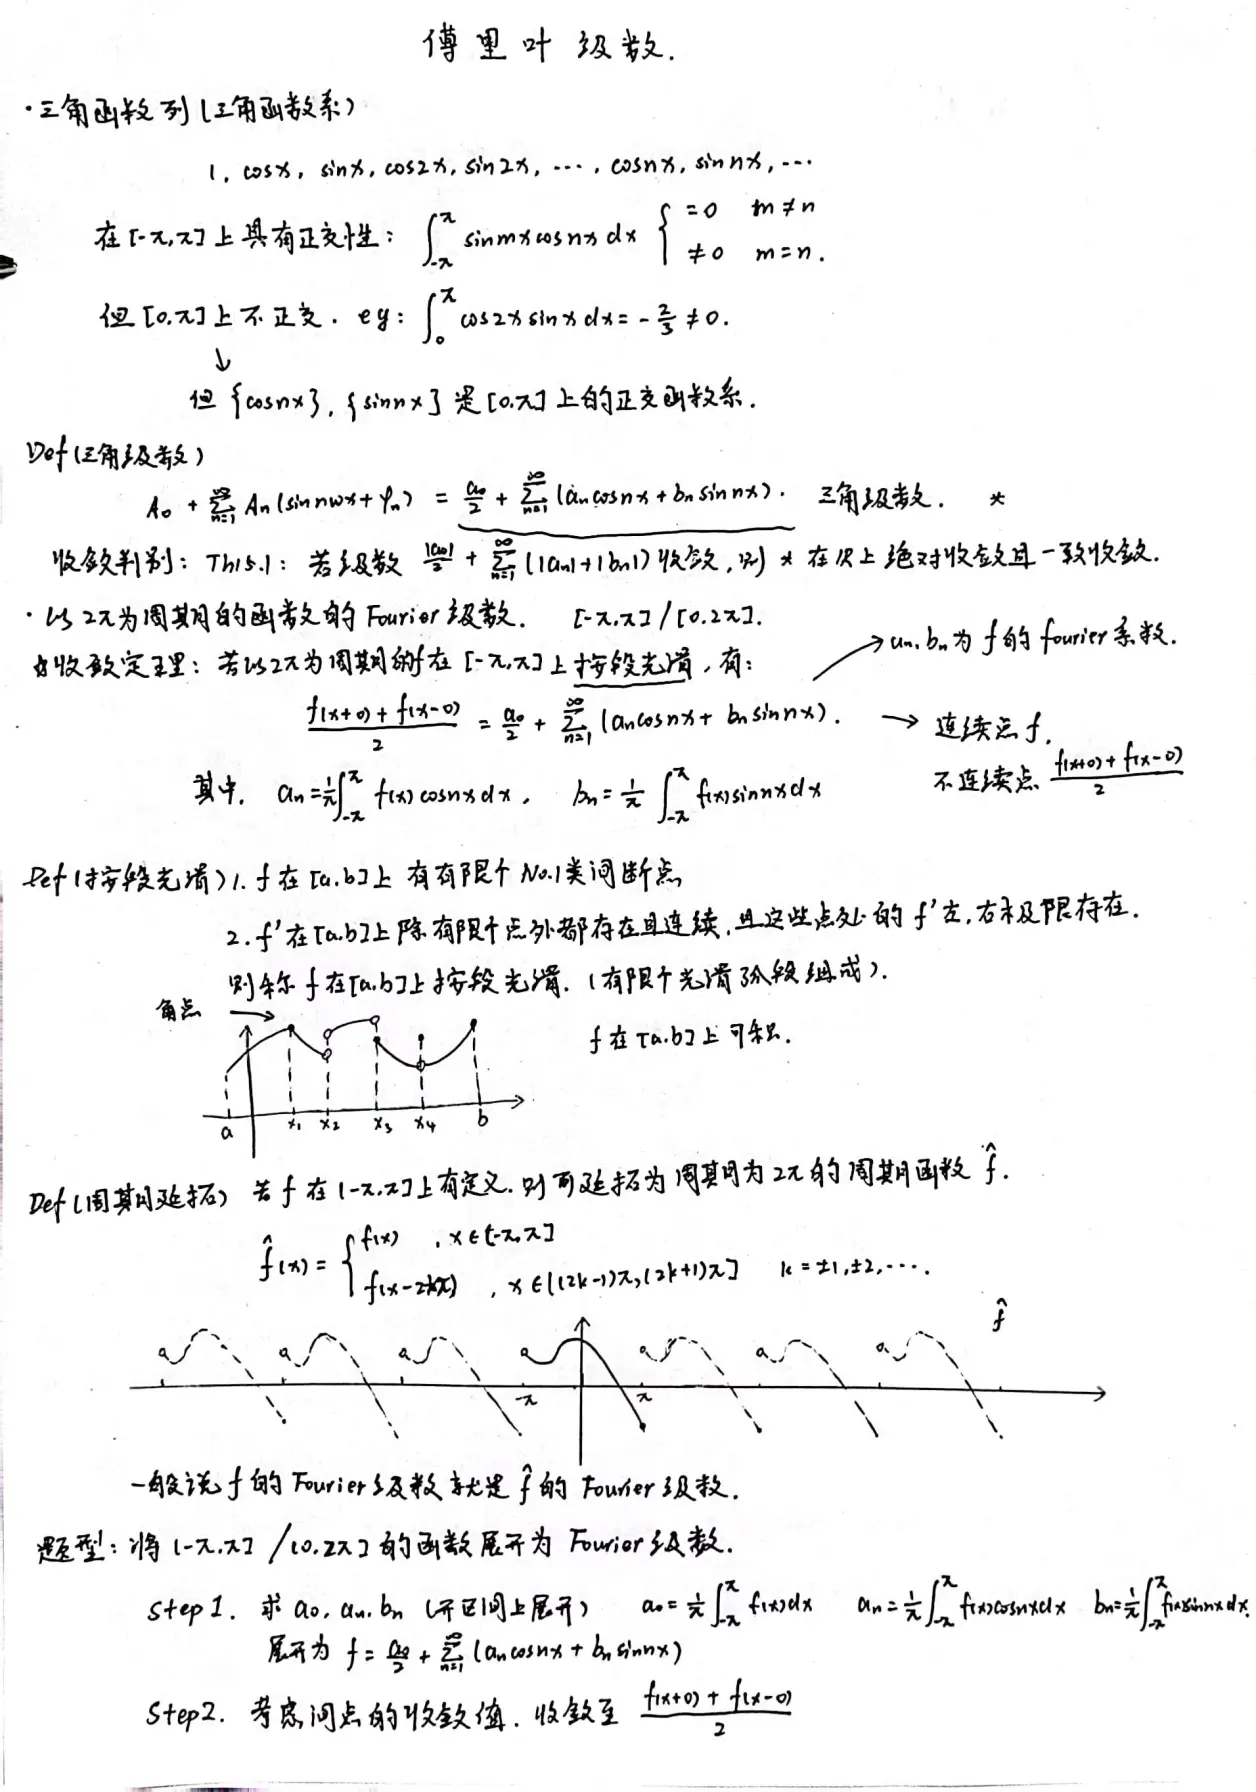 傅里叶级数.
·三角函数列(三角函数系)
1, cosx, sinx, cos2x, sin2x, ···, cosnx, sinnx, ···
在[-π,π]上具有正交性: ∫_{-π}^{π} sinmxcosnx dx { =0 m≠n
≠0 m=n.
但[0.π]上不正交. eg: ∫_0^π cos2xsinxdx = -2/3 ≠0.
↓
但{cosnx}, {sinnx}是[0.π]上的正交函数系.
Def(三角级数)
A₀ + ∑_{n=1}^∞ An(sinnωx+φn) = a₀/2 + ∑_{n=1}^∞ (ancosnx+bnsinnx). 三角级数. *
收敛判别: Th15.1: 若级数 |a₀|/2 + ∑_{n=1}^∞ (|an|+|bn|)收敛,则 * 在R上绝对收敛且一致收敛.
·以2π为周期的函数的Fourier级数. [-π.π]/[0.2π].
收敛定理: 若以2π为周期的f在[-π,π]上按段光滑,有: → an.bn为f的fourier系数.
(f(x+0)+f(x-0))/2 = a₀/2 + ∑_{n=1}^∞ (ancosnx+bnsinnx). → 连续点f.
不连续点 (f(x+0)+f(x-0))/2
其中. an=1/π∫_{-π}^{π} f(x)cosnxdx, bn=1/π∫_{-π}^{π} f(x)sinnxdx
Def(按段光滑)1. f在[a.b]上有有限个No.1类间断点
2. f'在[a.b]上除有限个点外都存在且连续,且这些点处的f'左,右极限存在.
则称f在[a.b]上按段光滑. (有限个光滑弧段组成).
角点 →
f在[a.b]上可积.
a x₁ x₂ x₃ x₄ b
Def(周期延拓) 若f在(-π.π]上有定义.则可延拓为周期为2π的周期函数 f̂.
f̂(x) = { f(x) , x∈(-π,π]
f(x-2kπ) , x∈((2k-1)π,(2k+1)π] k=±1,±2,···.
f̂
-π π
一般说f的Fourier级数就是f̂的Fourier级数.
题型: 将(-π.π] /(0.2π]的函数展开为Fourier级数.
Step1. 求a₀.an.bn (开区间上展开) a₀=1/π∫_{-π}^{π} f(x)dx an=1/π∫_{-π}^{π} f(x)cosnxdx bn=1/π∫_{-π}^{π} f(x)sinnxdx.
展开为 f = a₀/2 + ∑_{n=1}^∞ (ancosnx+bnsinnx)
Step2. 考虑间点的收敛值. 收敛至 (f(x+0)+f(x-0))/2